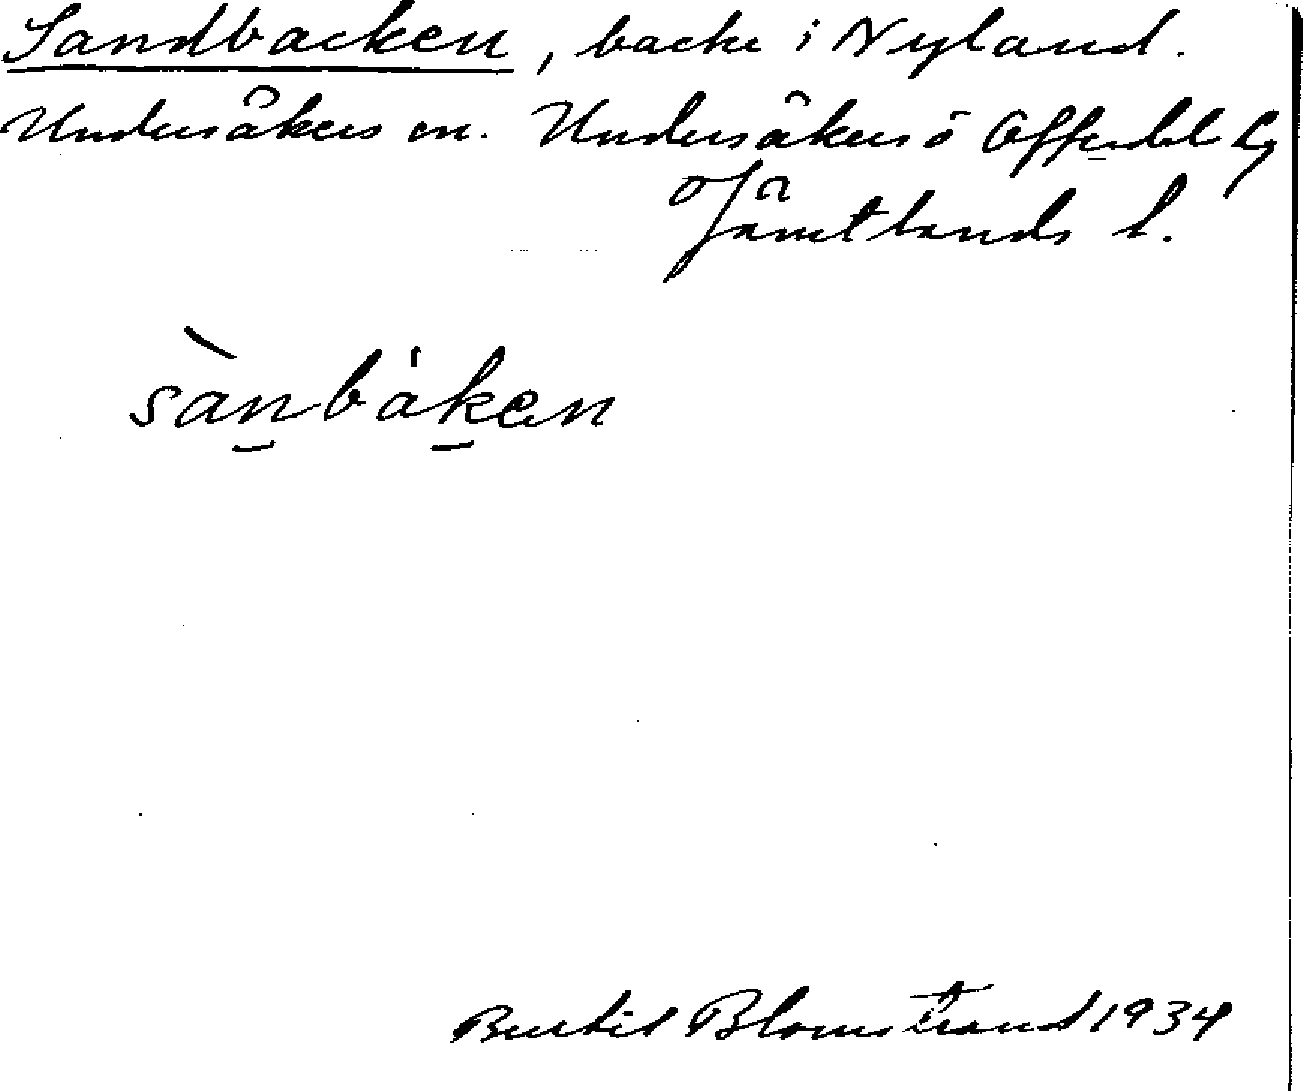 Sandbacken, backe i Nyland.
Undersåkers sn. Undersåkers o Offerdals tg
Jämtlands l.
sànbáken
Bertil Blomstrand 1934